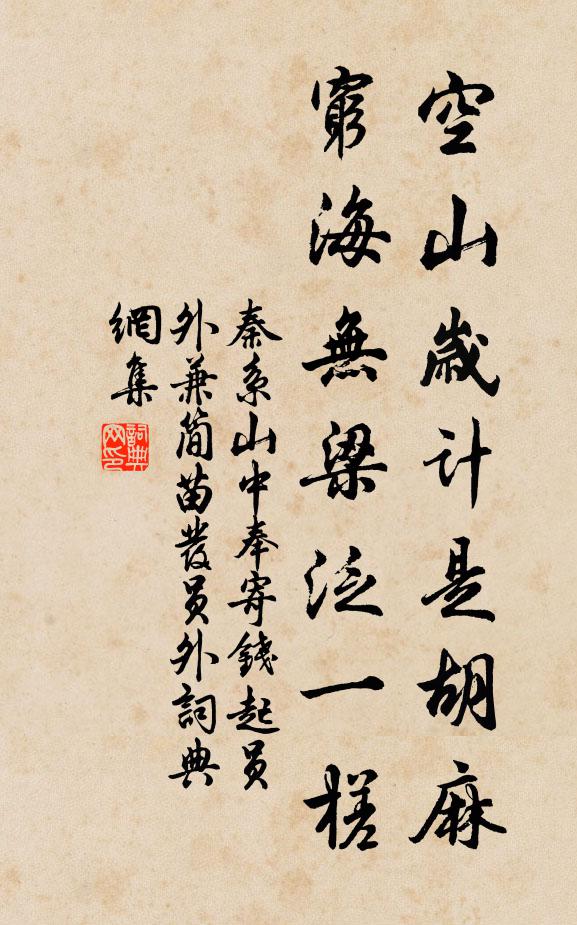 空山歲計是胡麻
窮海無梁泛一槎
秦系山中奉寄錢起員
外兼簡苗發員外詞典
網集
詞典
网印